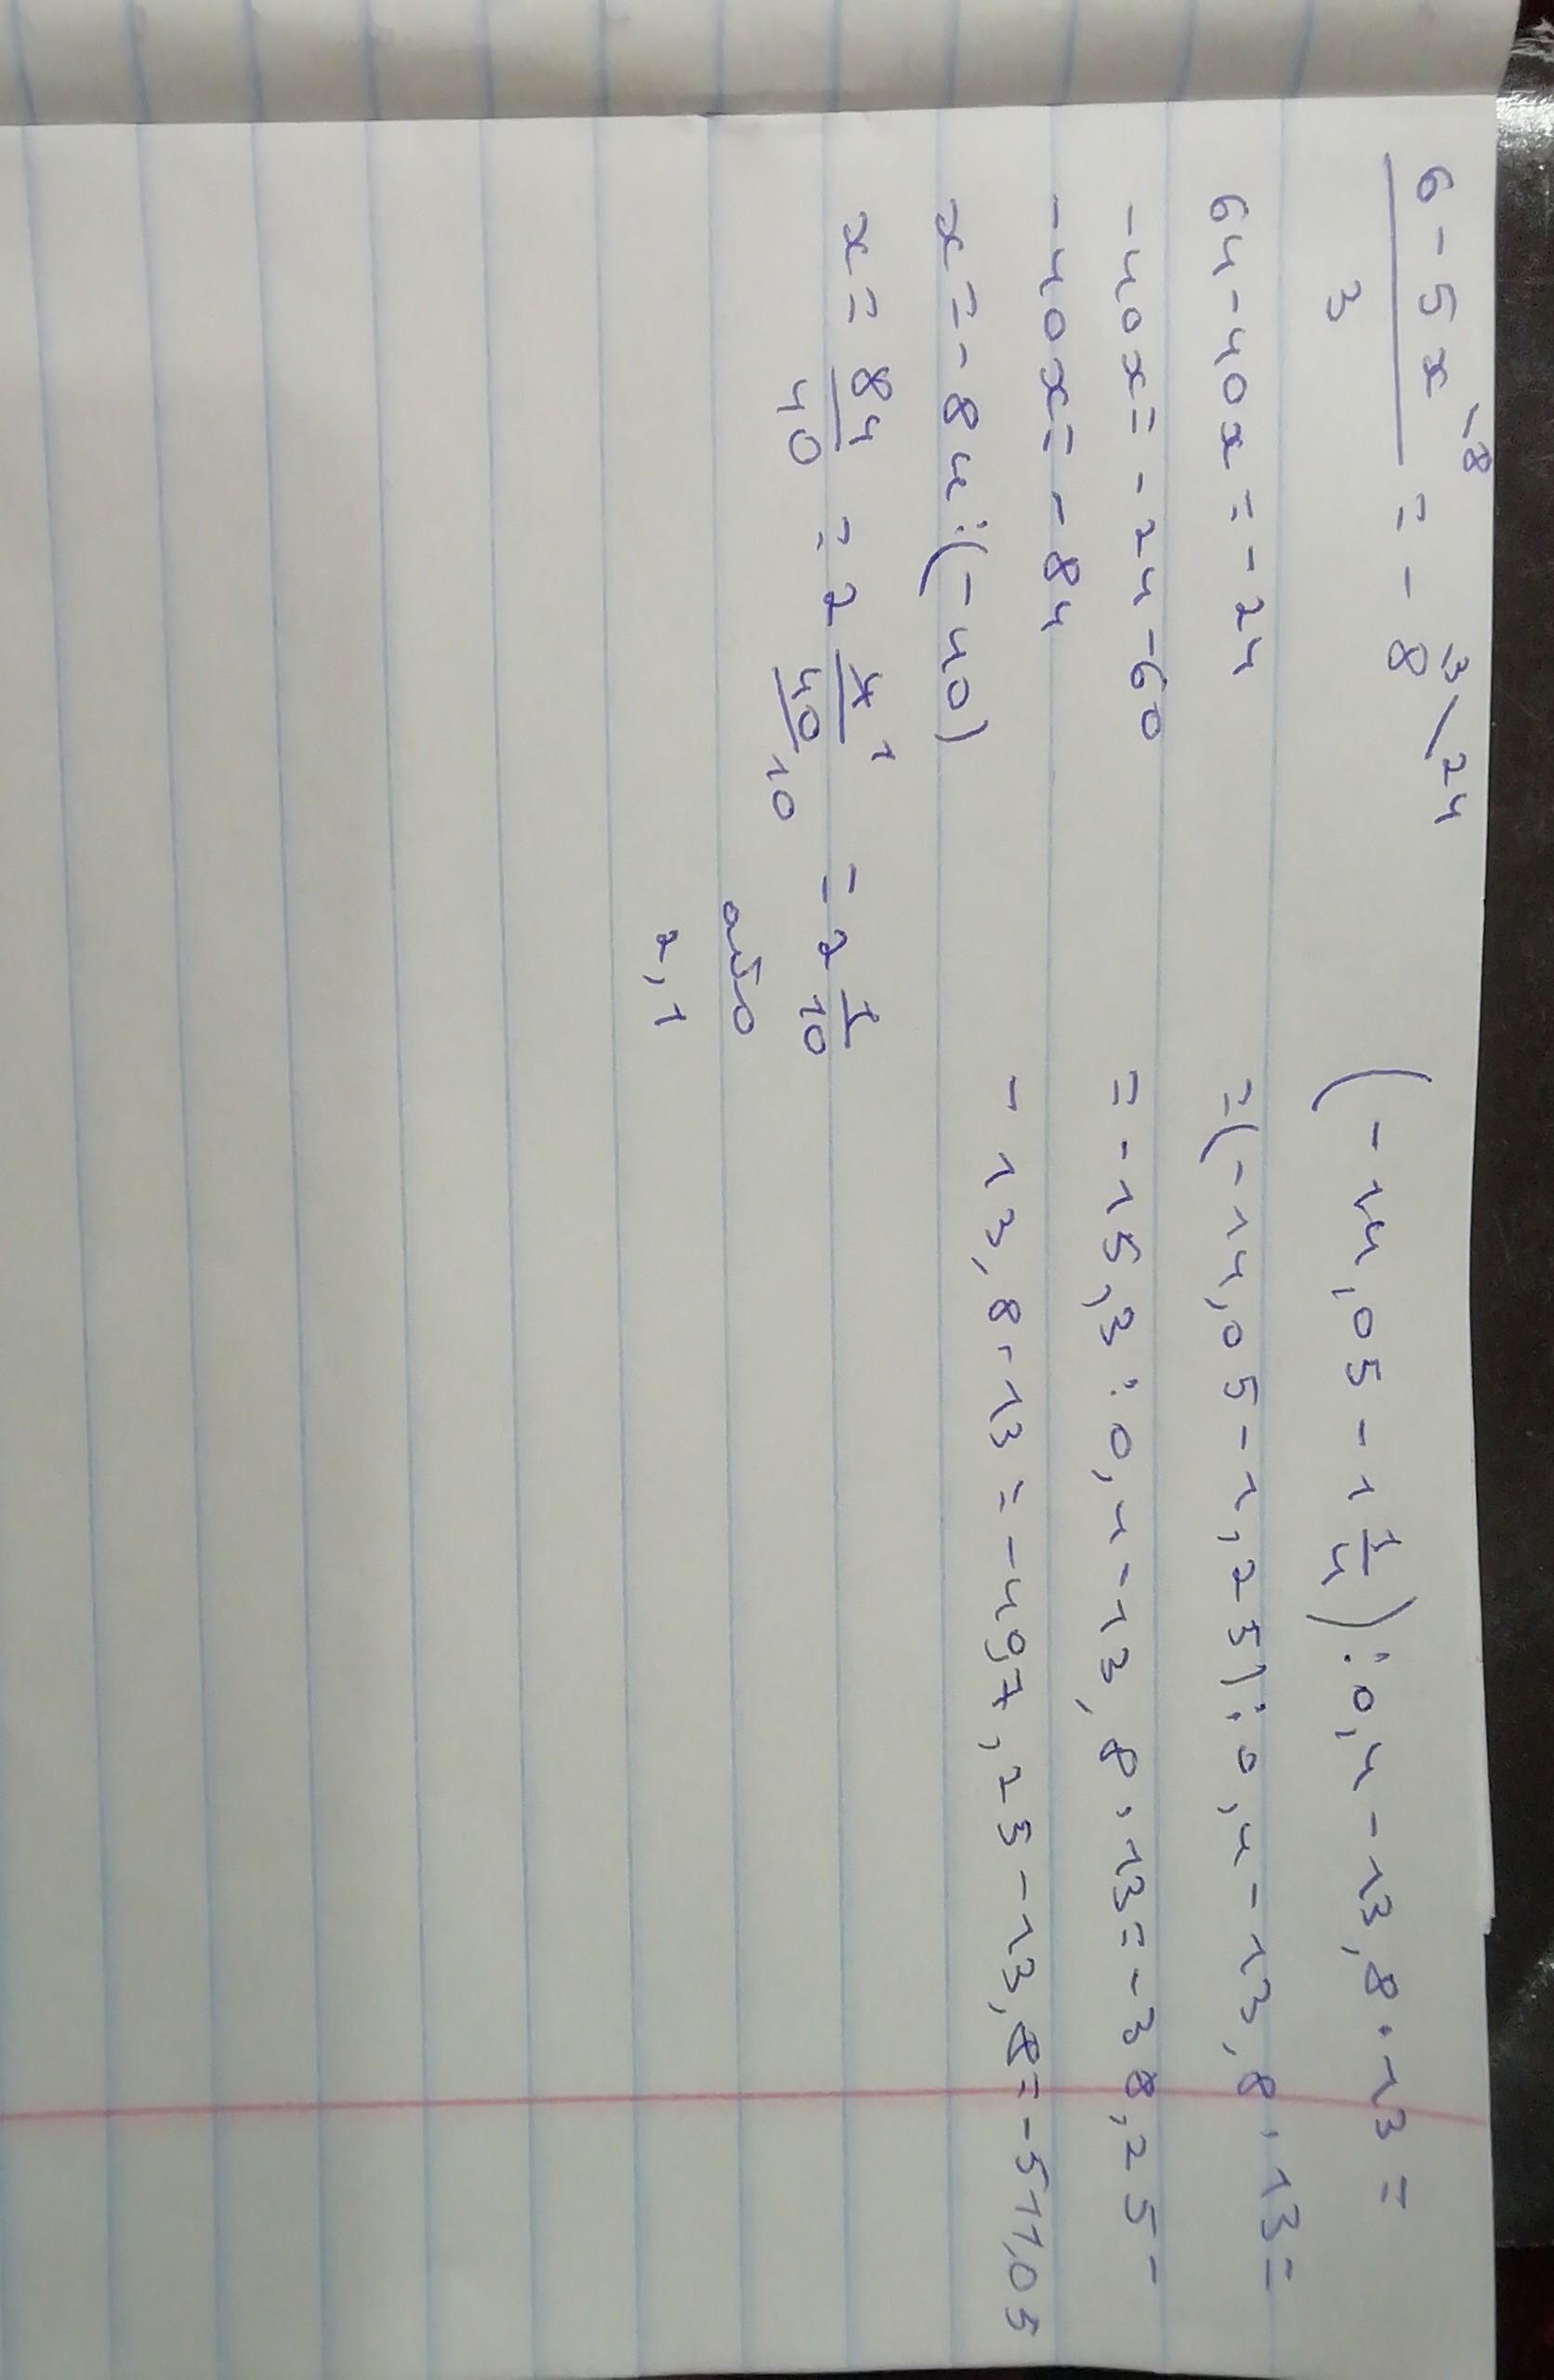 6-5x \-8 / 3 = -8 3\ 24
64-40x=-24
-40x=-24-60
-40x=-84
x=-84:(-40)
x= 84/40 = 2 4/40 1 10 = 2 1/10
або
2,1
(-14,05-1 1/4):0,4-13,8·13=
=(-14,05-1,25):0,4-13,8·13=
=-15,3:0,4-13,8·13=-38,25-
-13,8·13=-497,25-13,8=-511,05